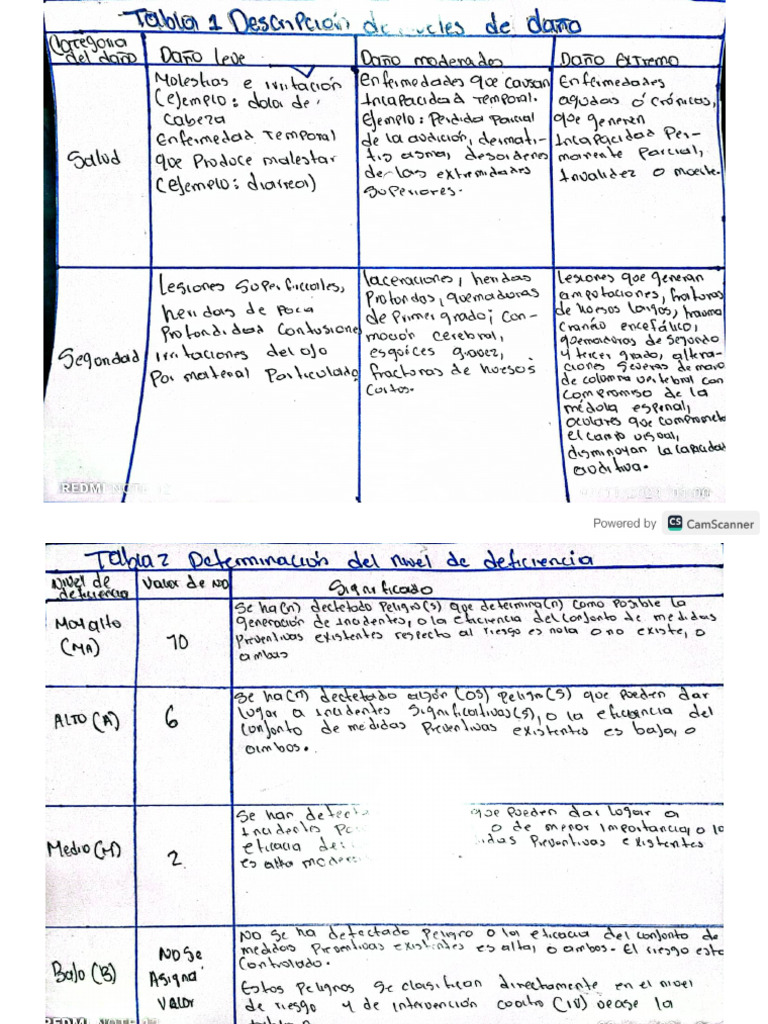 Tabla 1 Descripción de niveles de daño
Categoria
del daño
Daño leve
Daño moderados
Daño extremo
Salud
Molestias e irritación
(ejemplo: dolor de
cabeza
Enfermedad Temporal
que Produce malestar
(ejemplo: diarrea)
Enfermedades que causan
Incapacidad Temporal.
Ejemplo: Perdida Parcial
de la audición, dermati-
tis asma, desordenes
de las extremidades
Superiores.
Enfermedades
agudas o crónicas,
que generen
Incapacidad Per-
manente Parcial,
Invalidez o muerte.
Seguridad
Lesiones Superficiales,
heridas de poca
Profundidad Contusiones
irritaciones del ojo
Por material Particulado
laceraciones, heridas
Profundas, quemaduras
de Primer grado; con-
moción cerebral,
esguices graves,
fracturas de huesos
Cortos.
Lesiones que generan
amputaciones, fracturas
de huesos largos, trauma
craneo encefálico,
quemaduras de segundo
y tercer grado, altera-
ciones Severas de mano
de columna vertebral con
compromiso de la
médula espinal,
oculares que comprometen
el campo visual,
disminuyan la capacidad
auditiva.
REDMI NOTE 12
Powered by CS CamScanner
Tabla 2 Determinación del nivel de deficiencia
Nivel de
deficiencia
Valor de ND
Significado
Muy alto
(MA)
10
Se ha(n) dectetado Peligro(s) que determina(n) como Posible la
generación de incidentes, o la eficiencia del conjunto de medidas
Preventivas existentes respecto al riesgo es nula o no existe, o
ambas
ALTO (A)
6
Se ha(n) dectetado algún (os) Peligro(s) que Pueden dar
lugar a incidentes Significativas(s), o la eficiencia del
conjunto de medidas Preventivas existentes es baja, o
ambos.
Medio (M)
2
Se han detecta que Pueden dar lugar a
Incidentes o de menor importancia, o la
eficacia de Preventivas existentes
es alta
Bajo (B)
No Se
Asigna
Valor
No se ha detectado Peligro o la eficacia del conjunto de
medidas Preventivas existentes es alta, o ambos. El riesgo este
Controlado.
Estos Peligros Se clasifican directamente en el nivel
de riesgo y de intervención cuatro (IV) vease la
REDMI NOTE 12